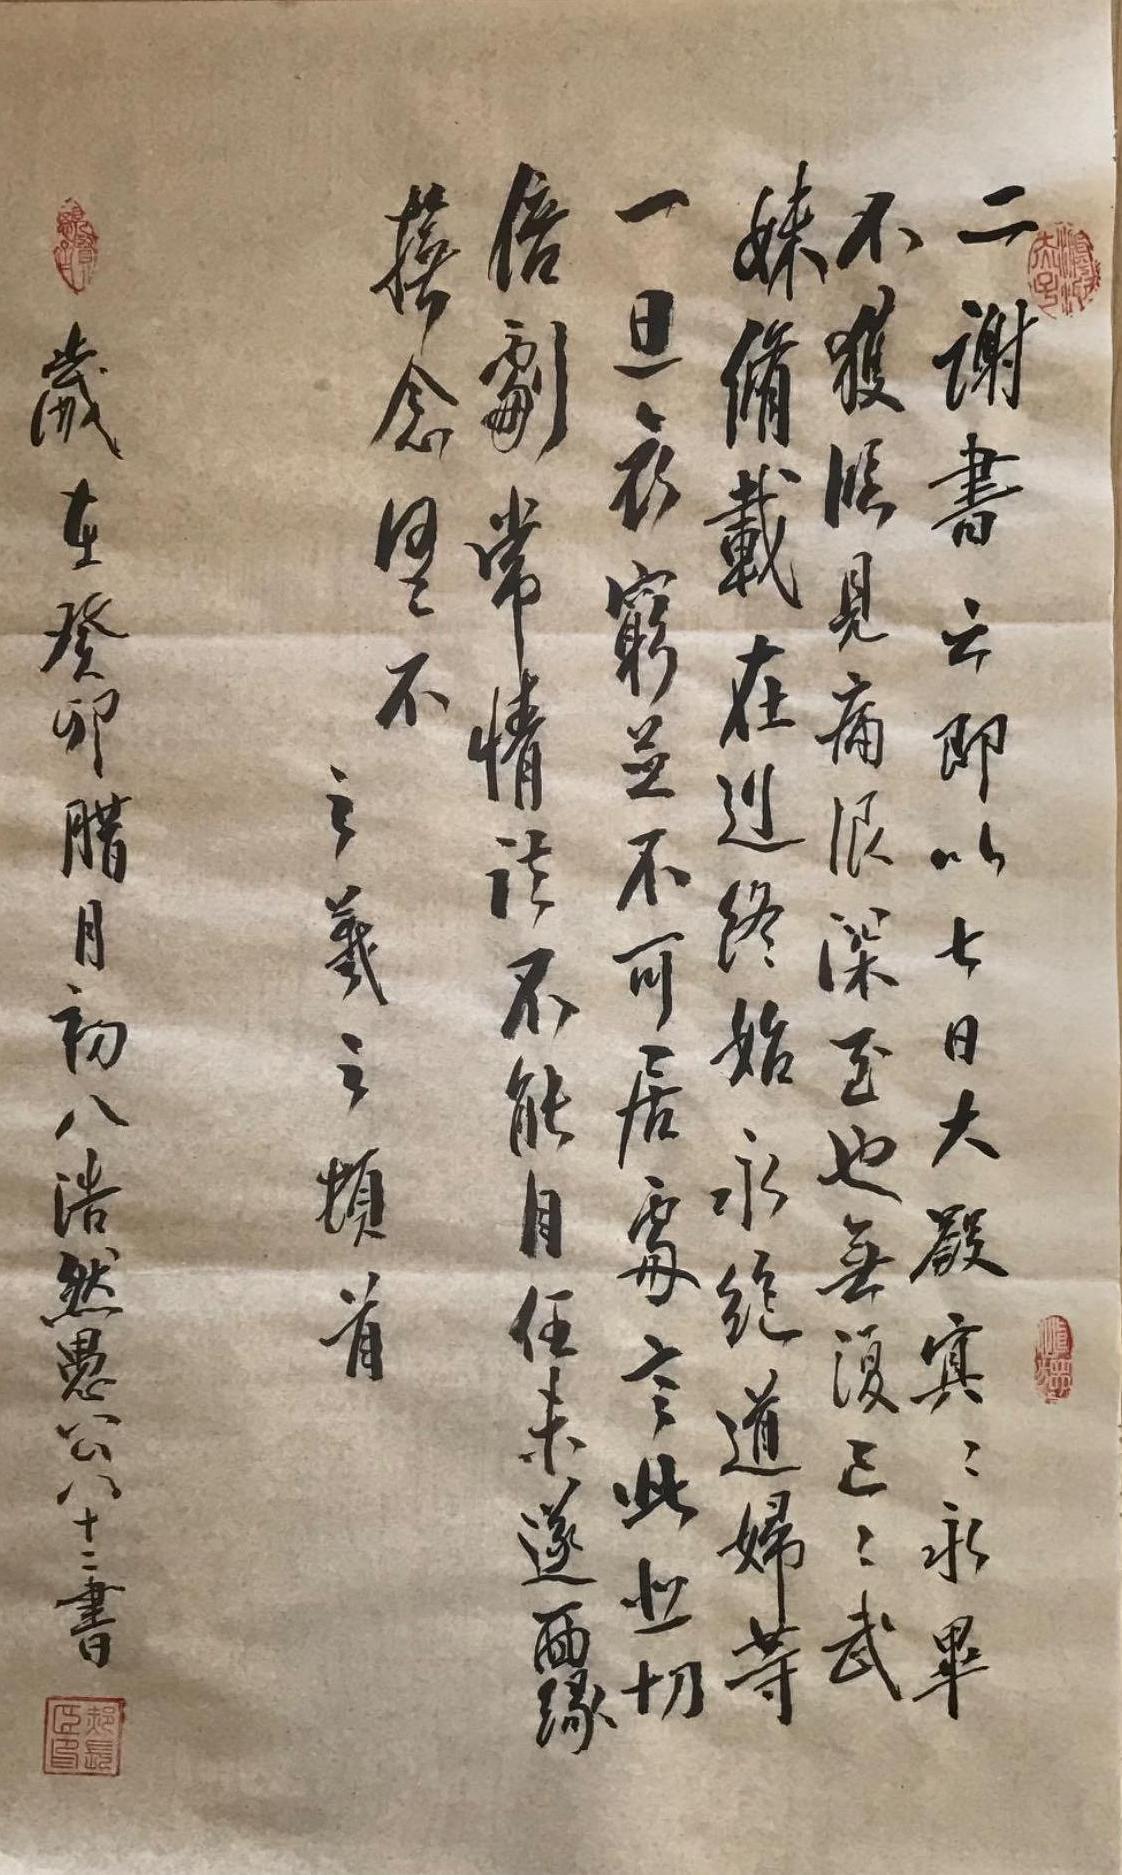 二謝書云即以七日大斂冥〻永畢
不獲臨見痛恨深至也無復已〻武
妹脩載在終始永絕道婦等
一旦哀窮並不可居處言此悲切
倍劇常情諸不能自任未遂面緣
撫念不
之羲之頓首
歲在癸卯腊月初八浩然愚公八十二書